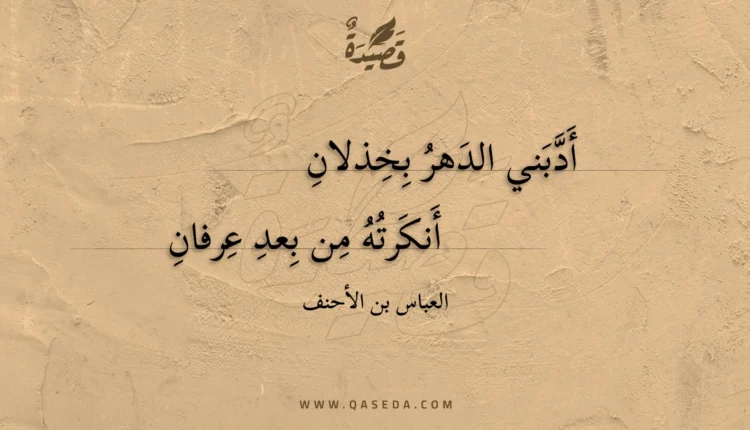 قَصِيدَةٌ
أَدَّبَني الدَهرُ بِخِذلانِ
أَنكَرتُهُ مِن بِعدِ عِرفانِ
العباس بن الأحنف
WWW.QASEDA.COM